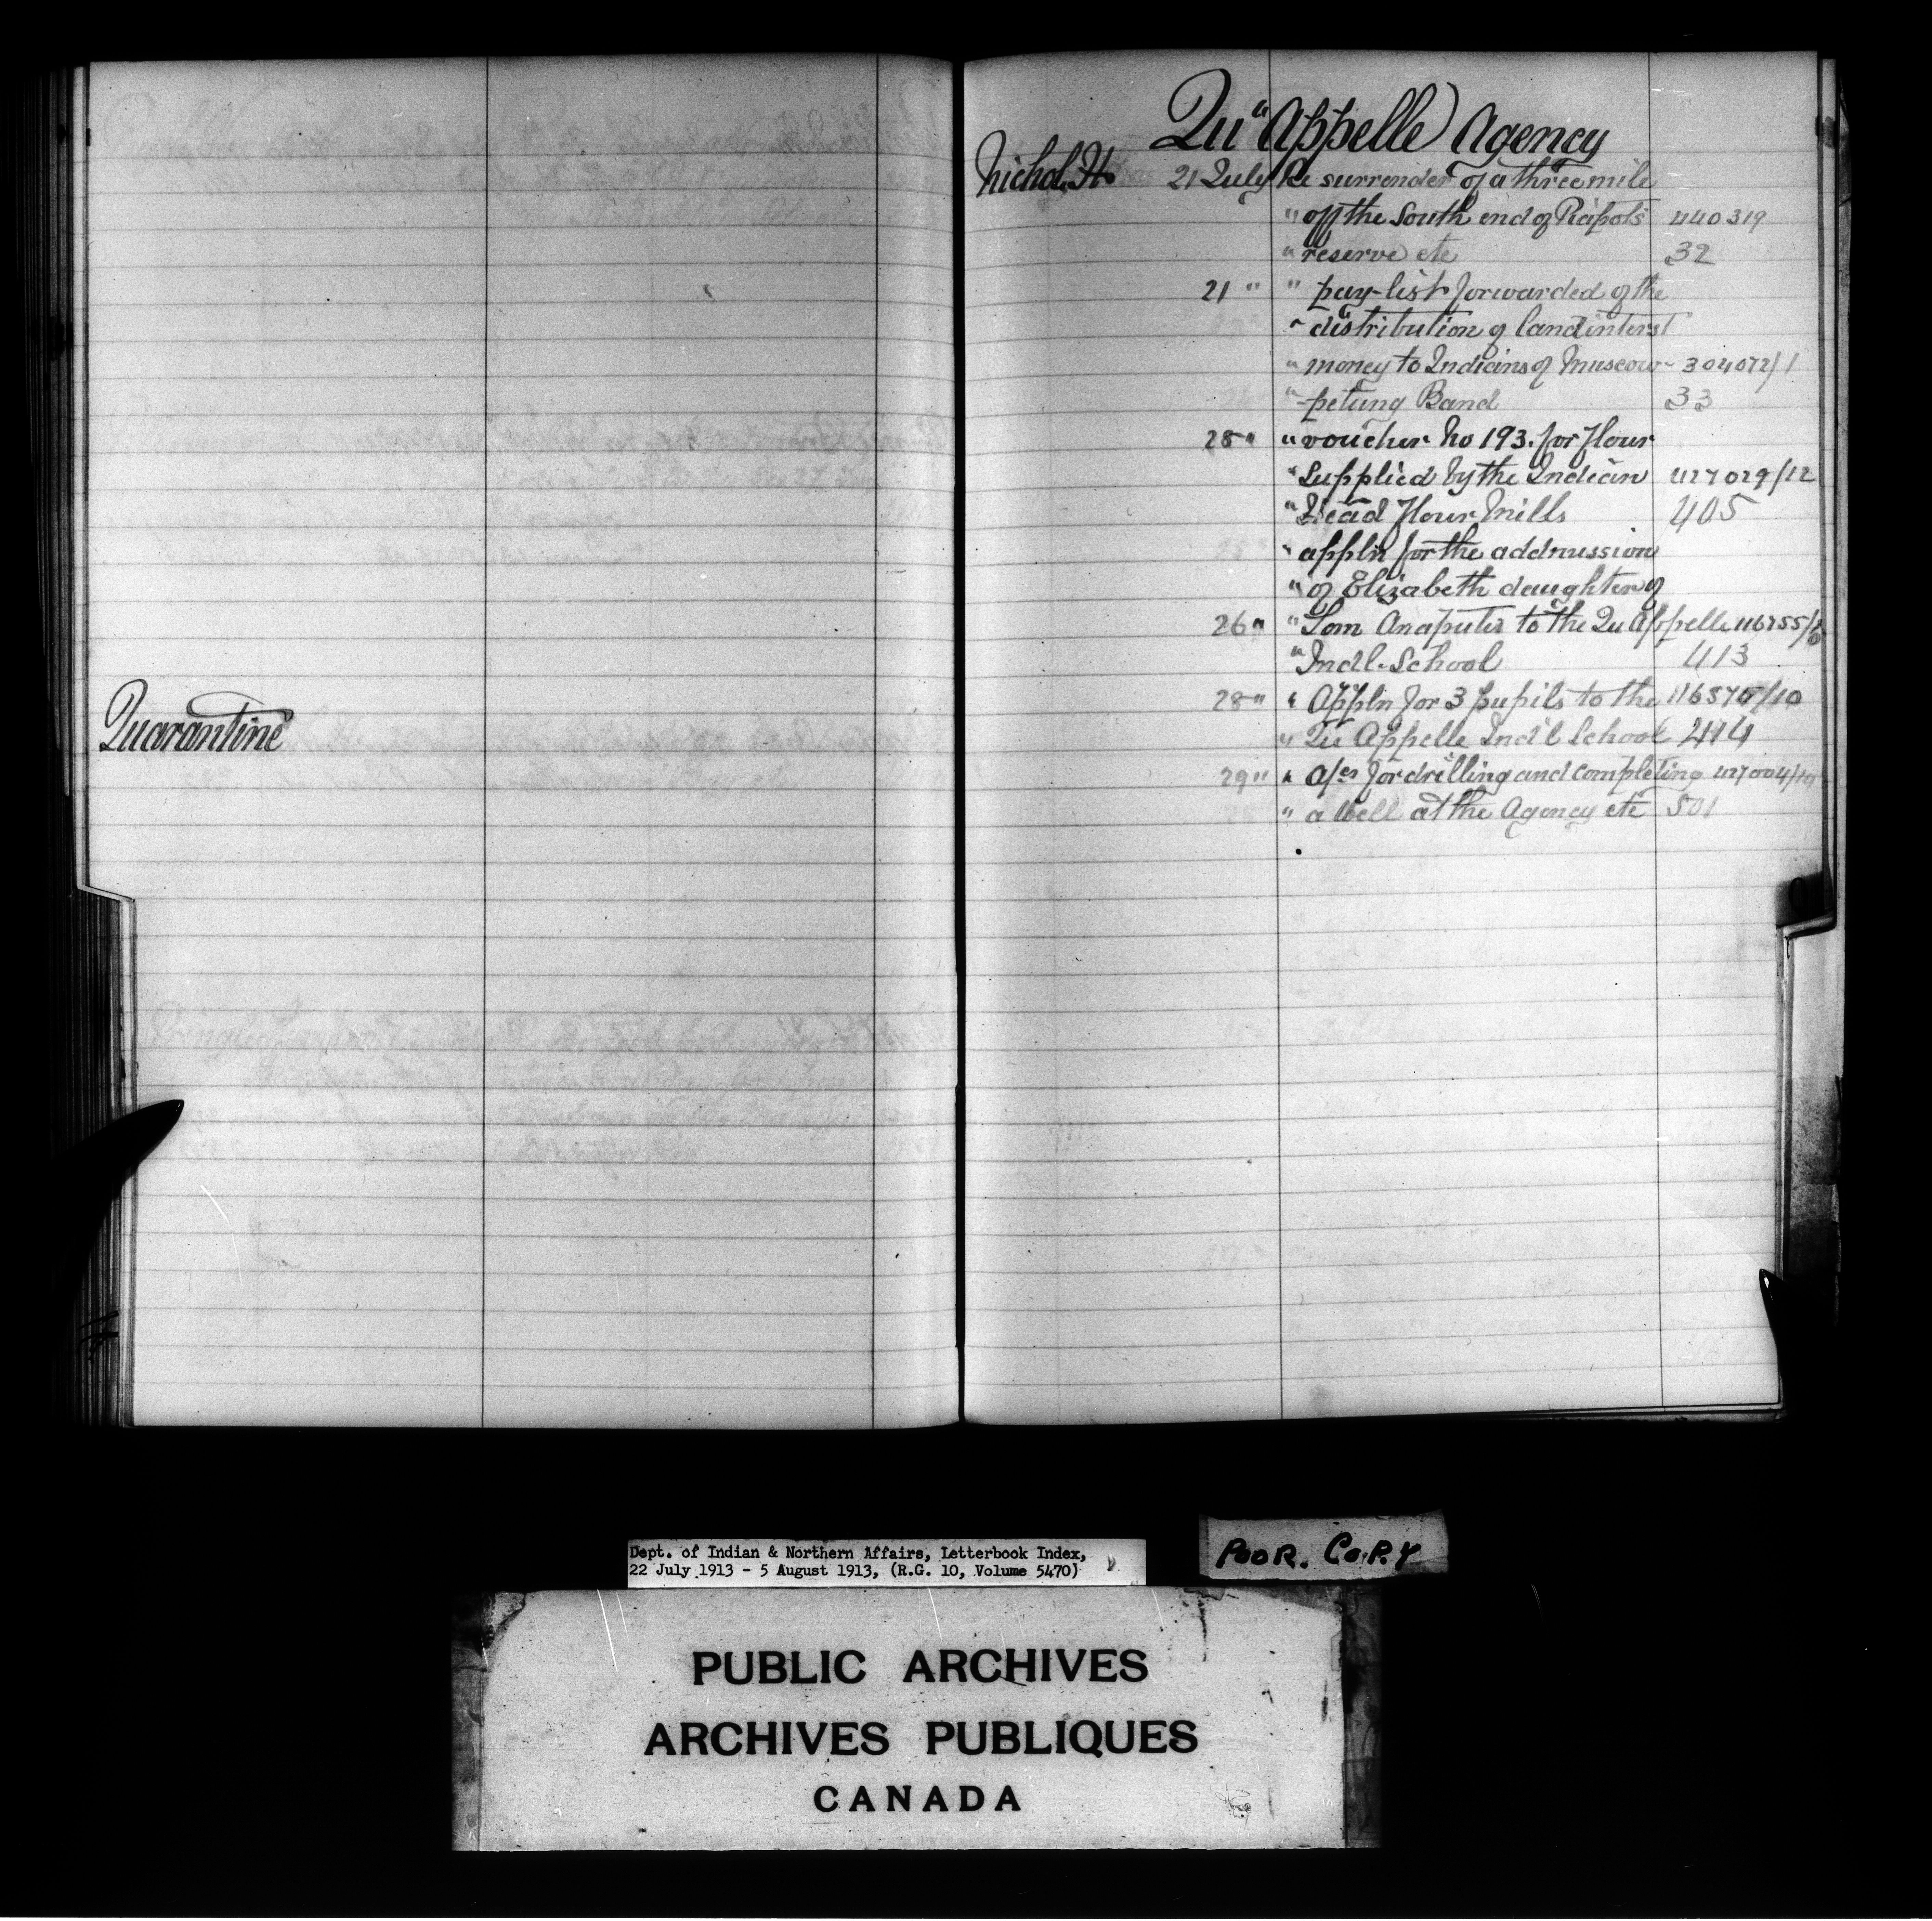 Quarantine
Qu'Appelle Agency
Nichol, H. 21 July Re surrender of a three mile
" off the South end of Piapots 440319
" reserve etc 32
21 " " pay-list forwarded of the
" distribution of land interst
" money to Indians of Muscow- 304072/1
" -petung Band 33
25 " " voucher No 193. for flour
" Supplied by the Indian 427029/12
" Head Flour Mills 405
" appln for the addmission
" of Elizabeth daughter of
26 " " Tom Anaputis to the Qu Appelle 116755/
" Indl. School 413
28 " " Appln for 3 pupils to the 116570/10
" Qu Appelle Ind'l School 414
29 " " a/cs for drilling and completing 427004/10
" a well at the Agency etc 501
Dept. of Indian & Northern Affairs, Letterbook Index,
22 July 1913 - 5 August 1913, (R.G. 10, Volume 5470)
POOR. COPY
PUBLIC ARCHIVES
ARCHIVES PUBLIQUES
CANADA